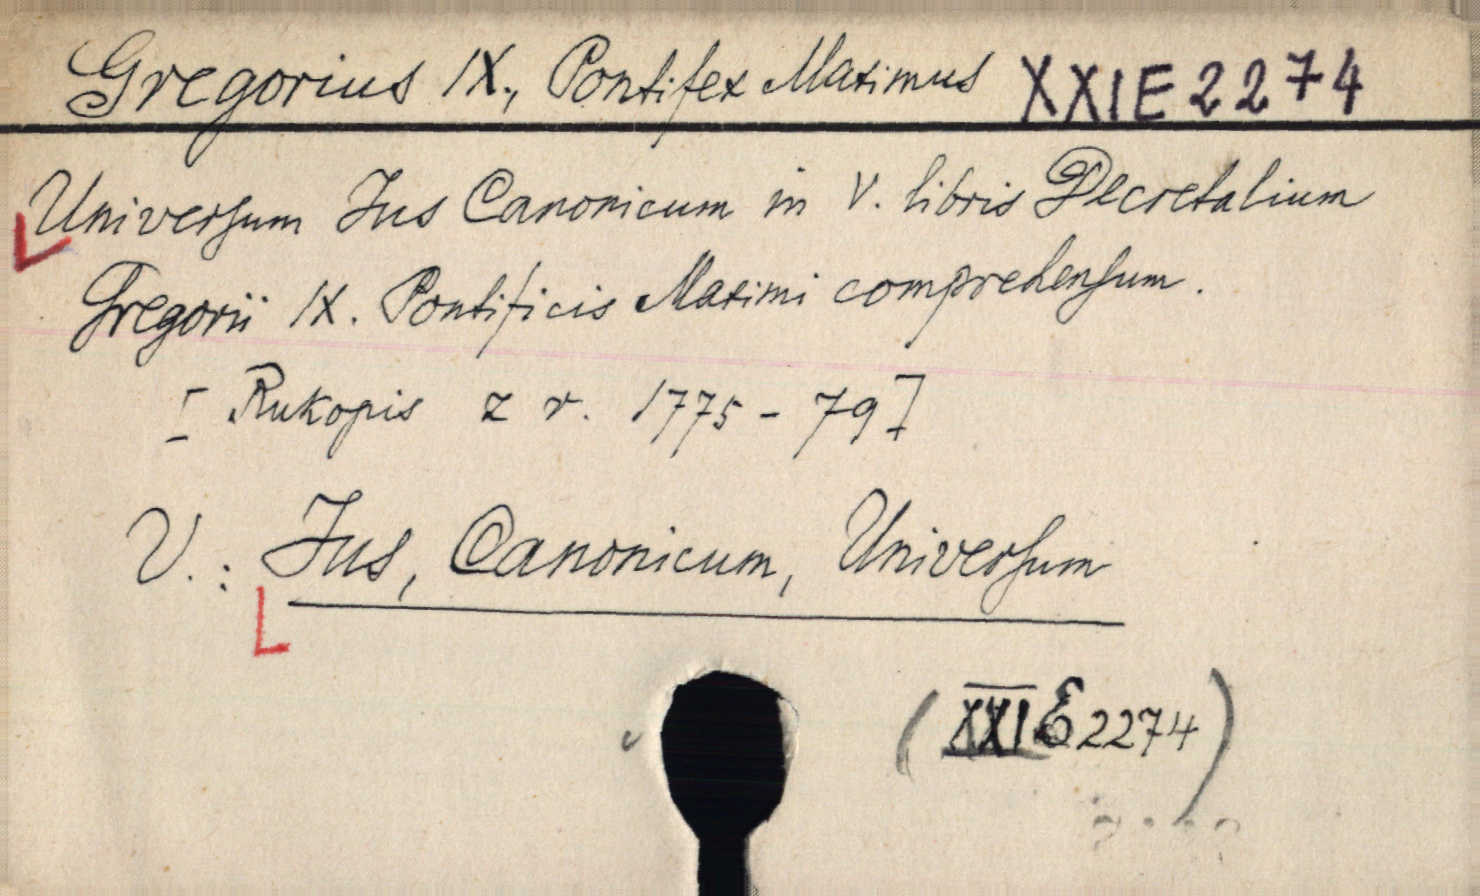 Gregorius IX., Pontifex Maximus XXIE2274
Universum Jus Canonicum in V. libris Decretalium
Gregorii IX. Pontificis Maximi comprehensum.
[Rukopis z r. 1775-79]
V.: Jus, Canonicum, Universum
(XXI E 2274)